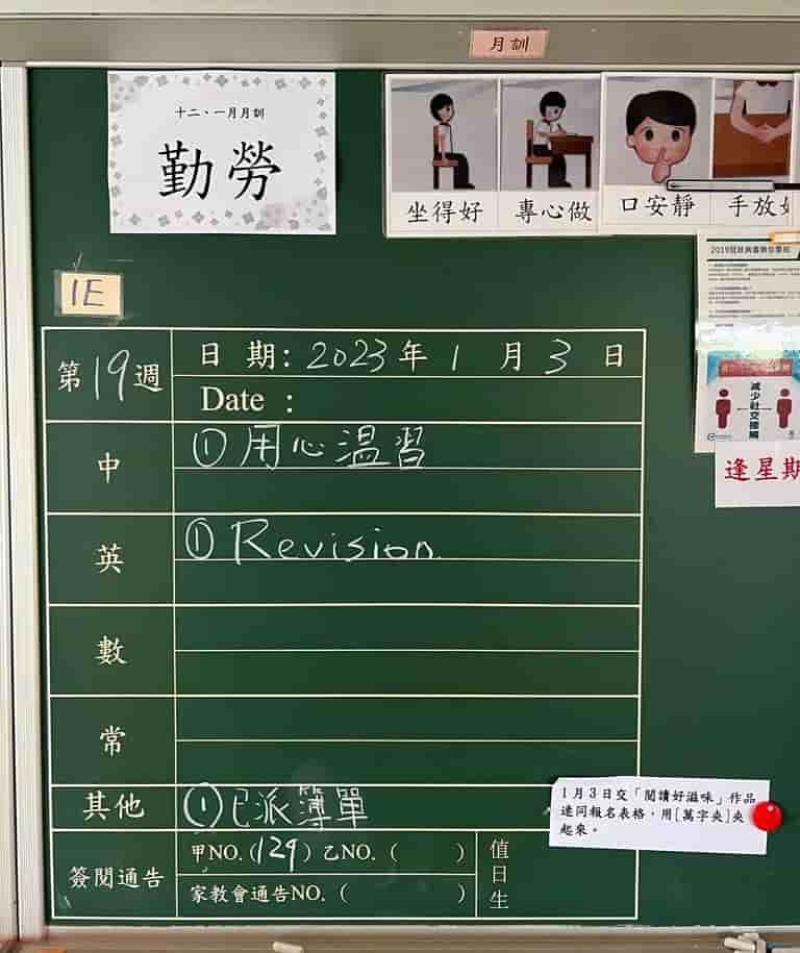 月訓
十二、一月月訓
勤勞
坐得好 專心做 口安靜 手放
1E
第19週
日 期：2023年 1 月 3 日
Date :
中 ①用心溫習
英 ①Revision.
數
常
其他 ①已派簿單
簽閱通告 甲NO. (129) 乙NO. ( )
家教會通告NO. ( )
值日生
減少社交接觸
逢星期
1月3日交「閱讀好滋味」作品
連同報名表格，用[萬字夾]夾
起來。